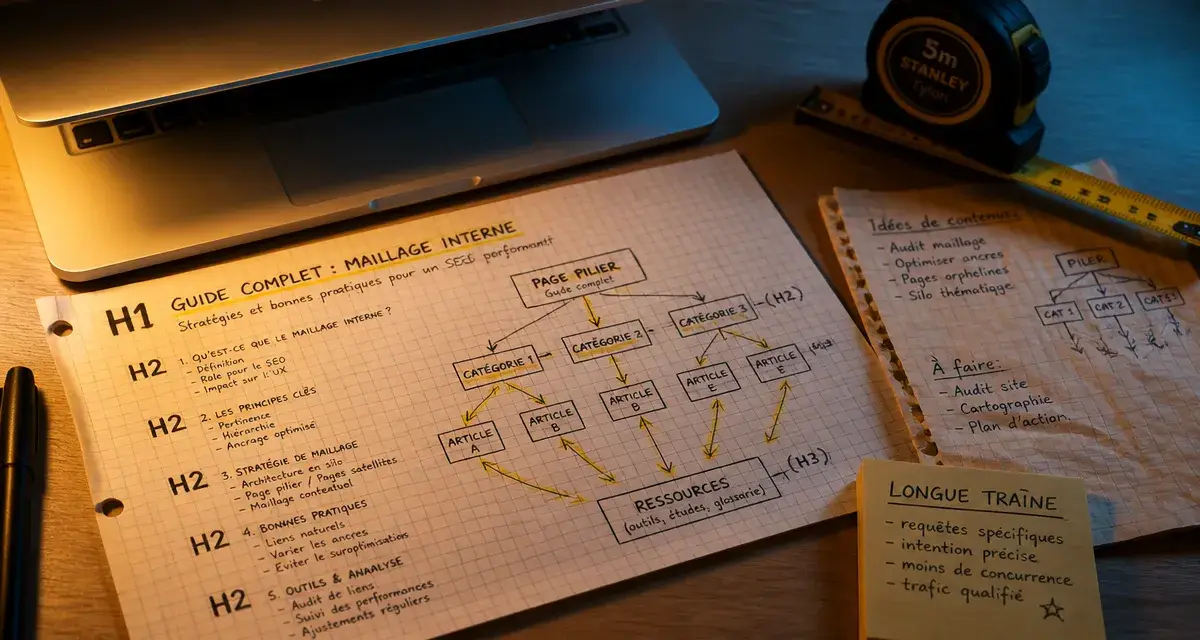 H1 GUIDE COMPLET : MAILLAGE INTERNE
Stratégies et bonnes pratiques pour un performant
H2 1. QU'EST-CE QUE LE MAILLAGE INTERNE ?
- Définition
- Role pour le SEO
- Impact sur l'UX
H2 2. LES PRINCIPES CLÉS
- Pertinence
- Hiérarchie
- Ancrage optimisé
H2 3. STRATÉGIE DE MAILLAGE
- Architecture en silo
- Page pilier / Pages satellites
- Maillage contextuel
H2 4. BONNES PRATIQUES
- Liens naturels
- Varier les ancres
- Eviter le suroptimisation
H2 5. OUTILS & ANALYSE
- Audit de liens
- Suivi des performances
- Ajustements réguliers
PAGE PILIER
Guide complet
CATÉGORIE 1
CATÉGORIE 2
CATÉGORIE 3
(H2)
ARTICLE A
ARTICLE B
ARTICLE B
ARTICLE E
ARTICLE E
RESSOURCES
(outils, études, glossarie)
(H3)
5m
STANLEY
Idées de contenu:
- Audit maillage
- Optimiser ancres
- Pages orphelines
- Silo thématique
PILER
CAT 1
CAT 2
À faire:
- Audit site
- Cartographie
- Plan d'action
LONGUE TRAÎNE
- requêtes spécifiques
- intention précise
- moins de concurrence
- trafic qualifié